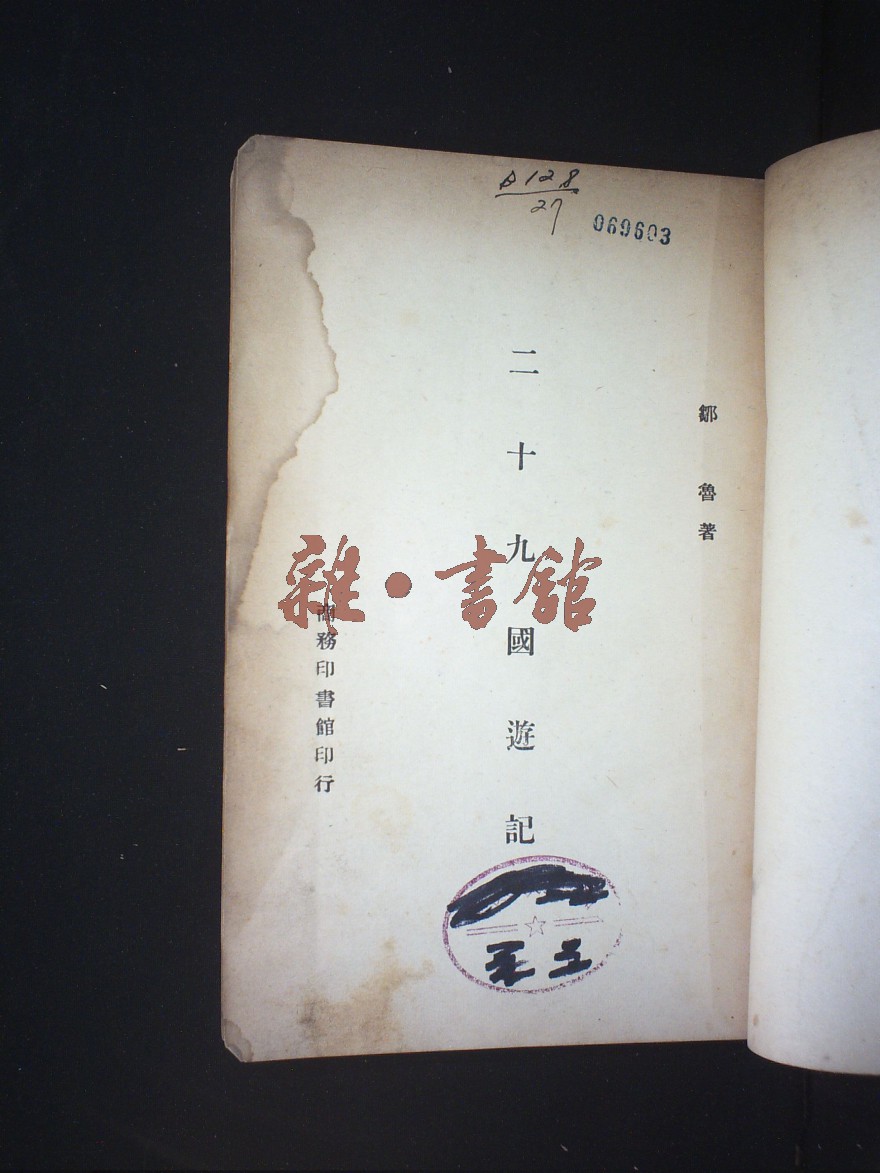 D128
27
069603
鄒魯著
二十九國遊記
商務印書館印行
雜·書館